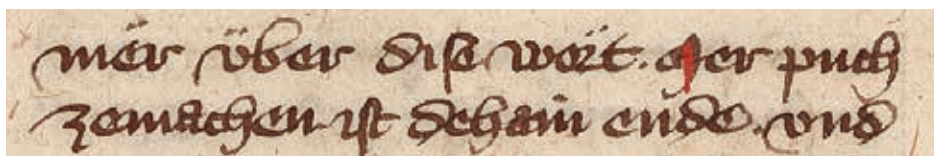 mër über dise wort. Mer puch
zemachen ist dehain ende. vnd